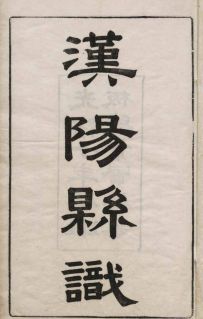 漢陽縣識